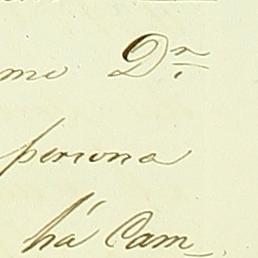 mo Dr.
persona
há Cam_